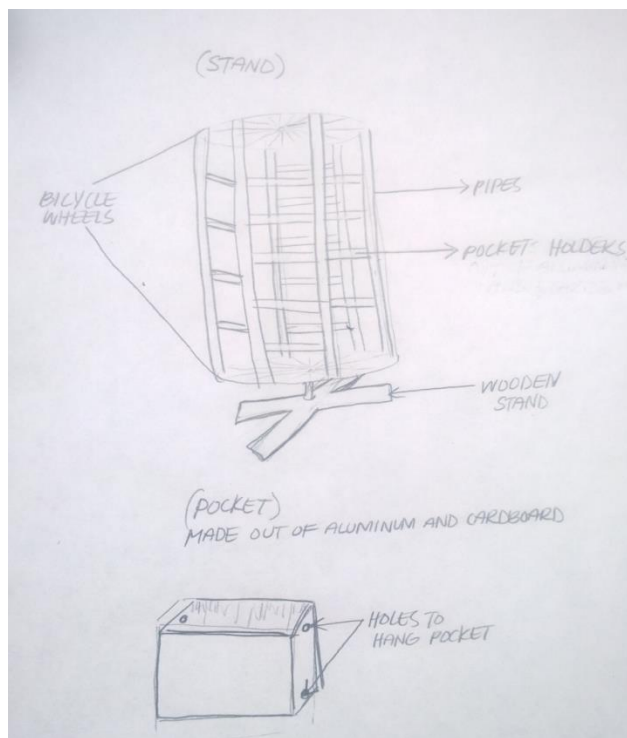 (STAND)
BICYCLE
WHEELS
PIPES
POCKET HOLDERS
WOODEN
STAND
(POCKET)
MADE OUT OF ALUMINUM AND CARDBOARD
HOLES TO
HANG POCKET